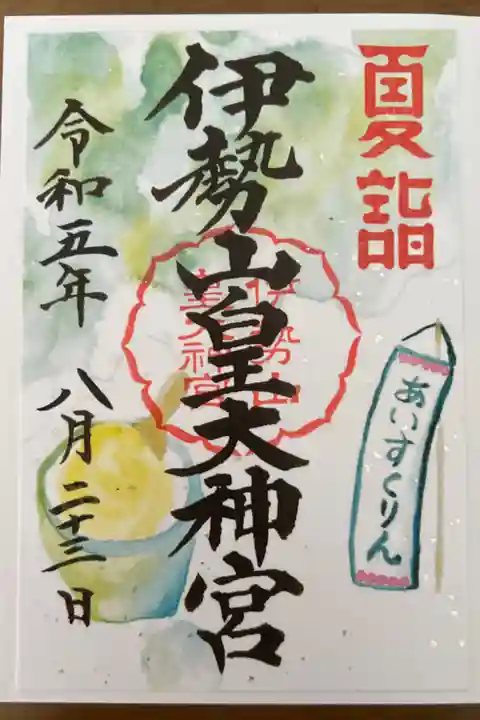 夏詣
伊勢山皇大神宮
伊勢山
皇大神宮
令和五年 八月二十三日
あいすくりん